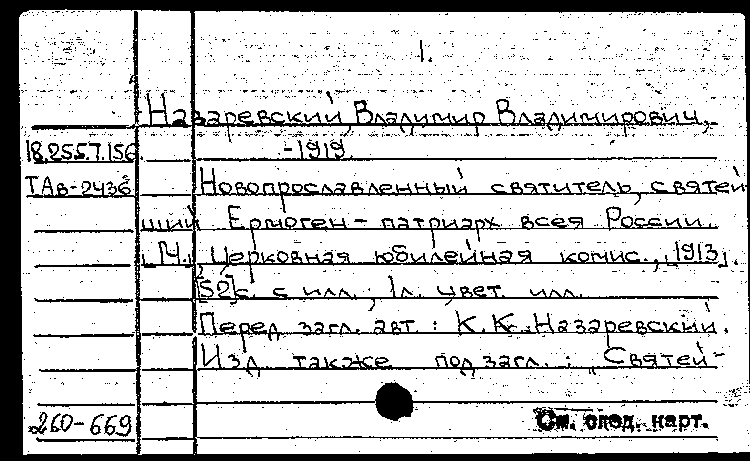 1.
Назаревский, Владимир Владимирович,
18.255.7.156. -1919.
ТАв-2436 Новопрославленный святитель, святей-
ший Ермоген - патриарх всея России.
[М.], Церковная юбилейная комис., [1913].
[52]с. с илл.; 1л. цвет. илл.
Перед загл. авт.: К.К. Назаревский.
Изд также под загл.: „Святей-
260-669 См. след. карт.